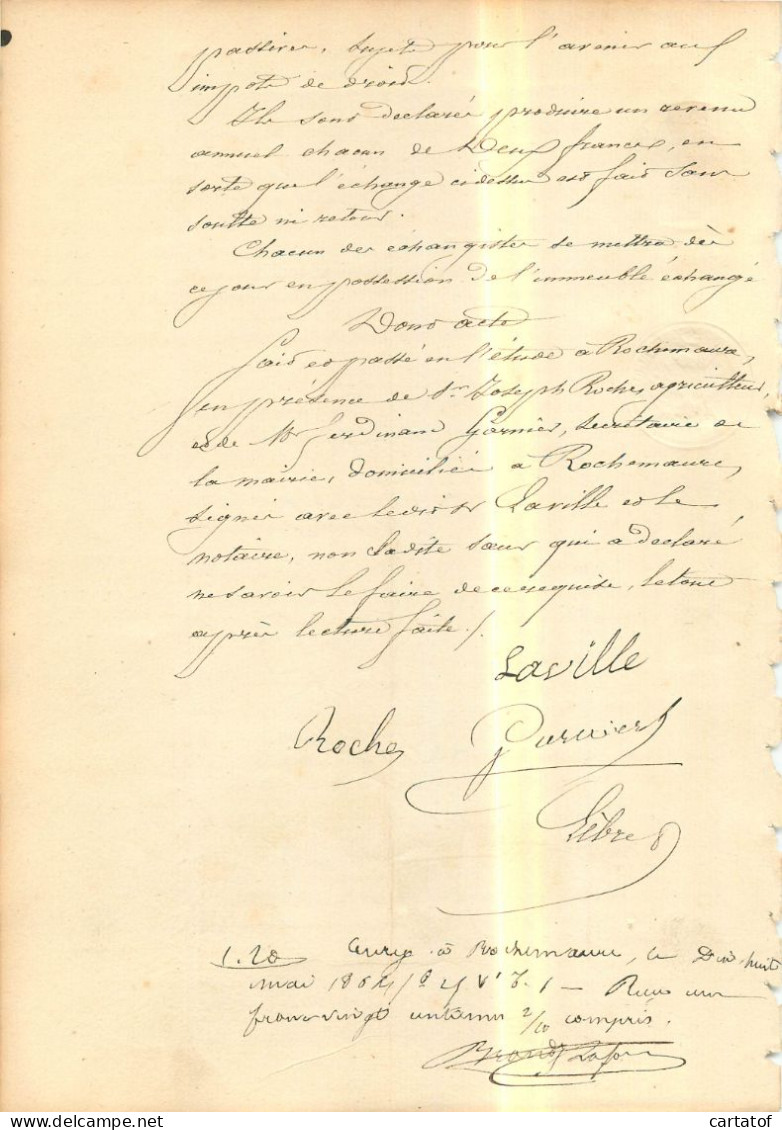 passives, sujets pour l'avenir aux
impôts de droit.
Ils sont déclarés produire un revenu
annuel chacun de Deux francs, en
sorte que l'échange cidessus est fait sans
soulte ni retour.
Chacun des échangistes se mettra dès
ce jour en possession de l'immeuble échangé
Dont acte
Fait et passé en l'étude à Rochemaure,
en présence de Sr. Joseph Roche, agriculteur,
et de Mr Ferdinand Garnier, secrétaire de
la mairie, domiciliés à Rochemaure,
signés avec ledit Sr Laville et le
notaire, non ladite sœur qui a déclaré
ne savoir le faire de ce requise, le tout
après lecture faite./.
Laville
Roche Garnier
Lèbre
1.20 Enreg. à Rochemaure, le Dix huit
mai 1864 - Reçu un
franc vingt centimes 2/10 compris.